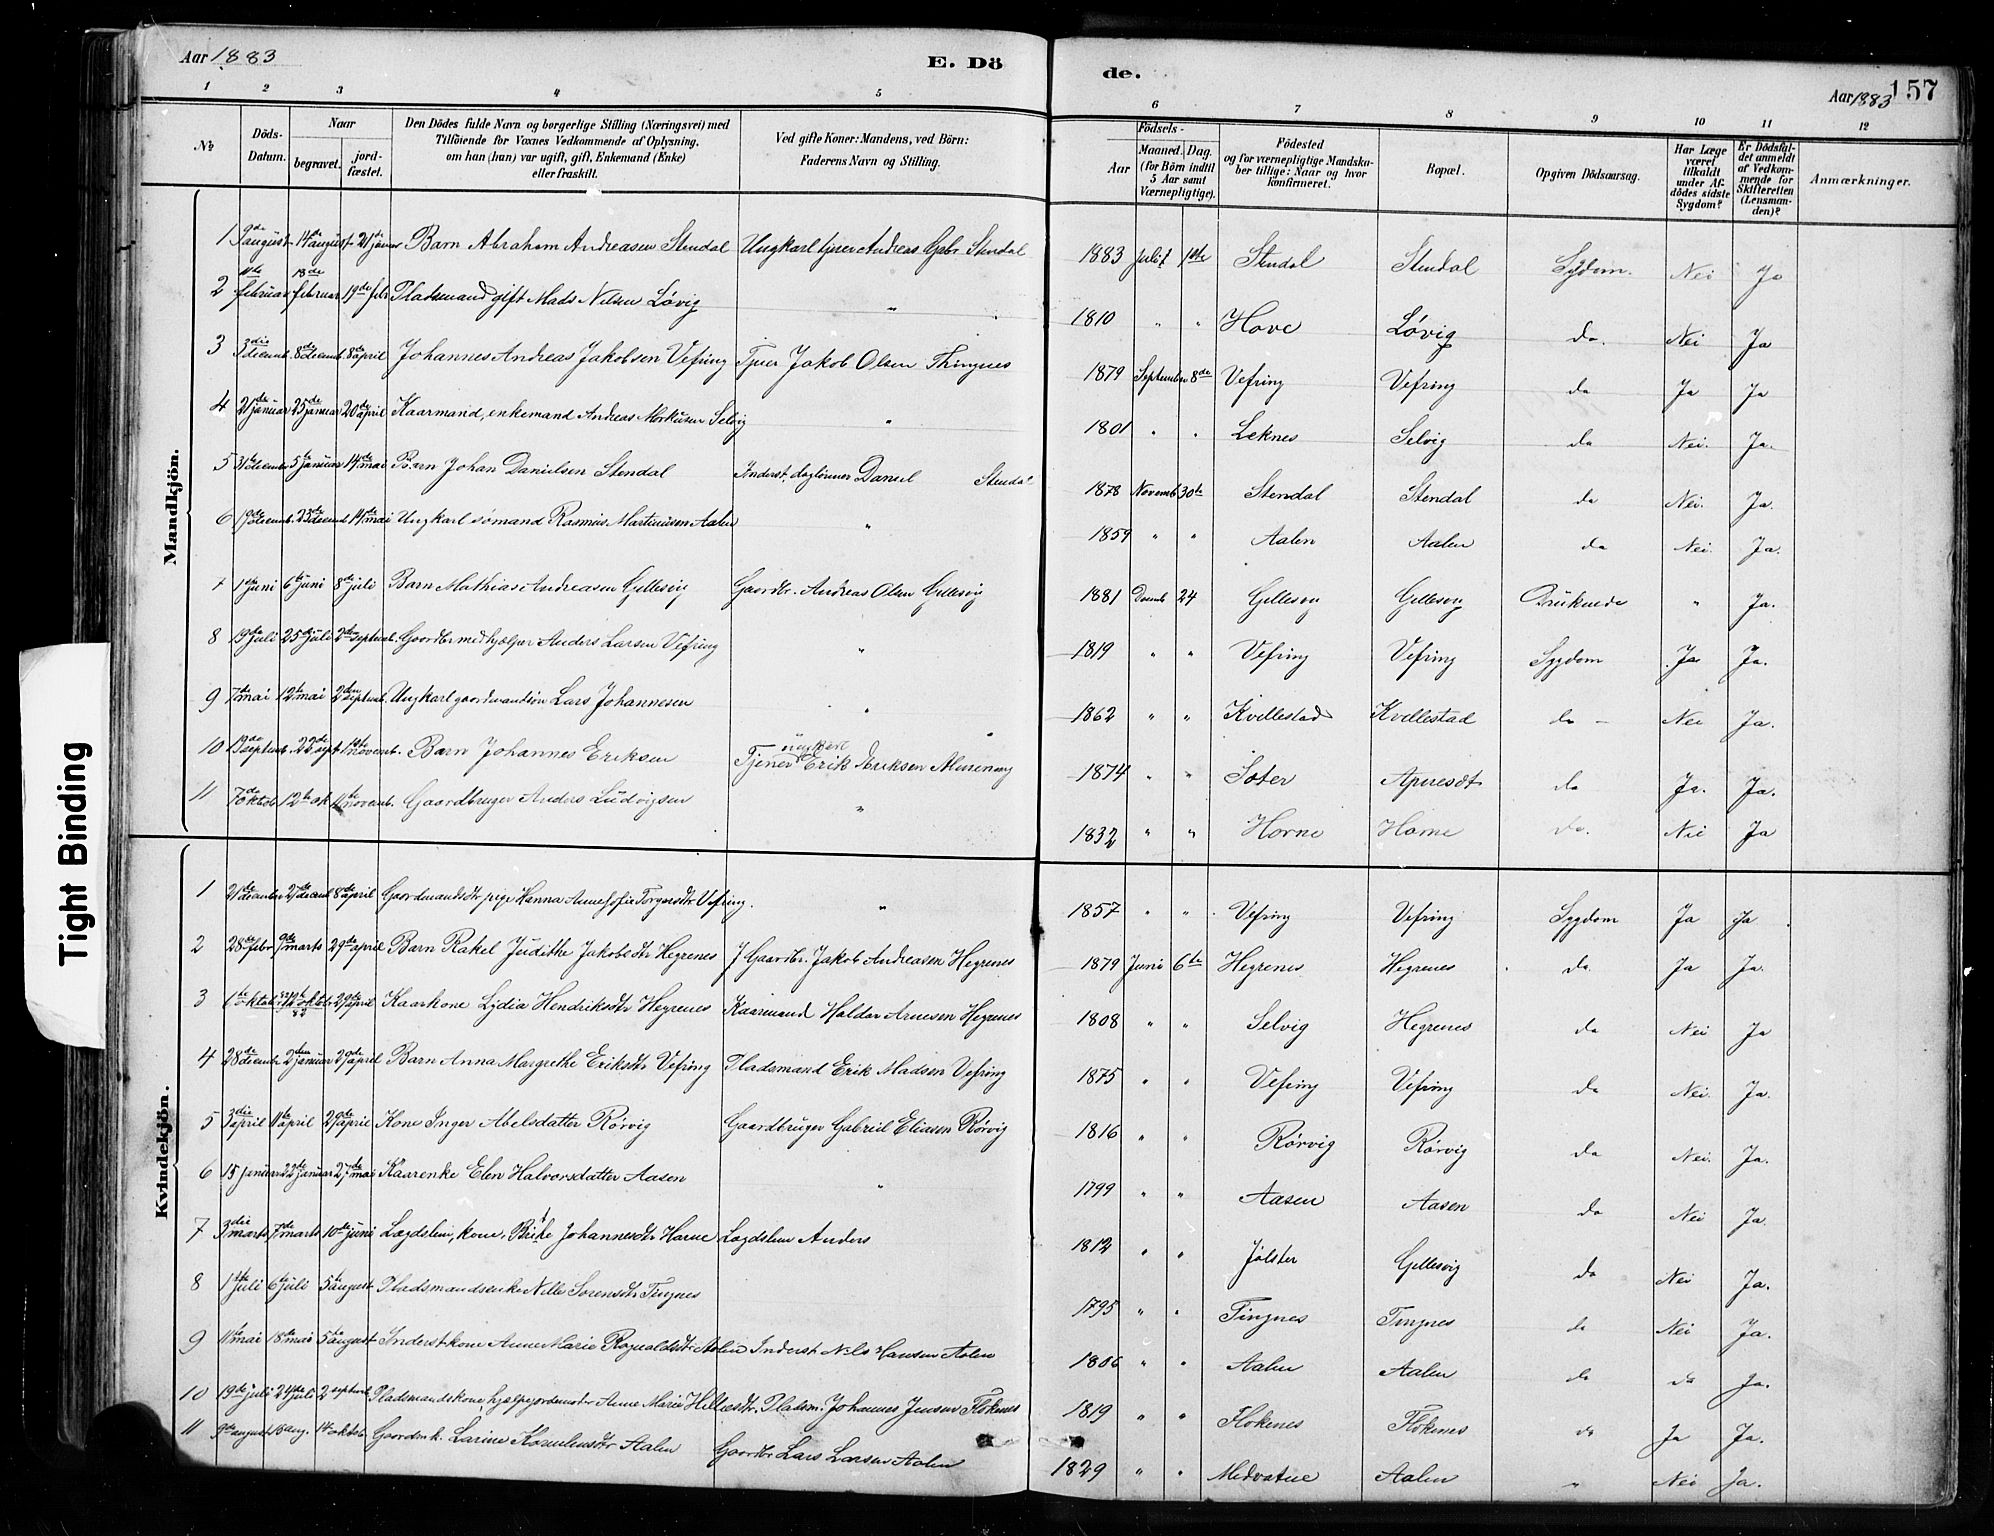 Aar 1883 E. Dö de. Aar 1883 157
1 2 3 4 5 6 7 8 9 10 11 12
No
Döds-Datum.
Naar
begravet.
jord-fæstet.
Den Dödes fulde Navn og borgerlige Stilling (Næringsvei) med
Tilföiende for Voxnes Vedkommende af Oplysning,
om han (hun) var ugift, gift, Enkemand (Enke)
eller fraskilt.
Ved gifte Koner: Mandens, ved Börn:
Faderens Navn og Stilling.
Födsels-
Aar
Maaned. Dag.
(for Börn indtil
5 Aar samt
Værnepligtige).
Födested
og for værnepligtige Mandska-
ber tillige: Naar og hvor
konfirmeret.
Bopæl.
Opgiven Dödsaarsag.
Har Læge
været
tilkaldt
under Af-
dödes sidste
Sygdom?
Er Dödsfal-
det anmeldt
af Vedkom-
mende for
Skifteretten
(Lensman-
den)?
Anmærkninger.
Mandkjön.
1 9de august 14de august 21 januar Barn Abraham Andreasen Stendal Ungkarl tjener Andreas Gabr. Stendal 1883 Juli 1ste Stendal Stendal Sygdom. Nei Ja
2 11te februar 18de februar 19de febr Pladsmand gift Mads Nilsen Løvig " 1810 " " Hove Løvig do. Nei Ja
3 3die decemb. 8de decemb. 8de april Johannes Andreas Jakobsen Vefring Tjener Jakob Olsen Thingnes 1879 September 8de Vefring Vefring do Ja Ja
4 21de januar 25de januar 20de april Kaarmand, enkemand Andreas Markusen Selvig " 1801 " " Leknes Selvig do Nei. Ja.
5 31te december 5te januar 14de mai Barn Johan Danielsen Stendal Inderst, daglønner Daniel Stendal 1878 Novemb 30te Stendal Stendal do Nei. Ja.
6 19de decemb. 23de decemb 14de mai Ungkarl sømand Rasmus Martinusen Aalen " 1859 " " Aalen Aalen do Nei. Ja.
7 1ste juni 6te juni 8de juli Barn Mathias Andreasen Gillesvig Gaardbr. Andreas Olsen Gillesvig 1881 Decemb 24 Gillesvig Gillesvig Druknede " Ja.
8 19de juli 25de juli 2den septemb. Gaardbr medhjælper Anders Larsen Vefring " 1819 " " Vefring Vefring Sygdom Ja Ja.
9 7de mai 12te mai 2den septemb. Ungkarl gaardmandsøn Lars Johannesen " 1862 " " Kvellestad Kvellestad do Nei Ja.
10 13de septemb. 22de sept. 11te novemb. Barn Johannes Eriksen ungkarl Tjener Erik Eriksen Almenning 1874 " " Soter do Ja. Ja.
11 7de oktob 12te ok. 11te novemb. Gaardbruger Anders Ludvigsen " 1832 " " Horne Horne do. Nei Ja
Kvindekjön.
1 21de december 27de decemb 8de april Gaardmandsdtr pige Hanna Anne Sofie Torgersdtr Vefring. " 1857 " " Vefring Vefring Sygdom Ja Ja
2 28de febr 9de marts 29de april Barn Rakel Judithe Jakobsdtr Hegrenes Gaardbr. Jakob Andreasen Hegrenes 1879 Juni 6te Hegrenes Hegrenes do Ja Ja.
3 1ste oktob. oktob. 82 29de april Kaarkone Lydia Hendriksdtr Hegrenes Kaarmand Haldor Arnesen Hegrenes 1808 " " Selvig Hegrenes do Nei Ja
4 28de decemb 2den januar 29de april Barn Anna Margrethe Eriksdtr Vefring Pladsmand Erik Madsen Vefring 1875 " " Vefring Vefring do Nei. Ja.
5 3die april 11te april 29de april Kone Inger Abelsdatter Rørvig Gaardbruger Gabriel Eliasen Rørvig 1816 " " Rørvig Rørvig do Nei. Ja.
6 15 januar 22de januar 27de mai Kaarenke Elen Halvorsdatter Aasen " 1799 " " Aasen Aasen do Nei Ja.
7 3die marts 7de marts 10de juni Lægdslem, kone, Johannesdtr Horne Lægdslem Anders 1812 " " Jølster Gillesvig do Nei Ja.
8 1ste juli 6te juli 5te august Pladsmandsenke Nille Sørensdtr Tingnes 1795 " " Tingnes Tingnes do Nei Ja.
9 11te mai 18de mai 5te august Inderst kone Anne Marie Rognaldsdtr Aalen Inderst Nils Hansen Aalen 1806 " " Aalen Aalen do do Ja.
10 19de juli 24de juli 2 septemb Pladsmandskone, hjælpejordemoder Anne Marie Pladsm. Johannes Jensen Flokenes 1819 " " Flokenes Flokenes do Ja Ja.
11 9de august 18 aug. 14 oktob. Larine Aalen Gaardbr Lars Larsen Aalen 1829 " " Medvatne Aalen " Nei Ja.
Tight Binding